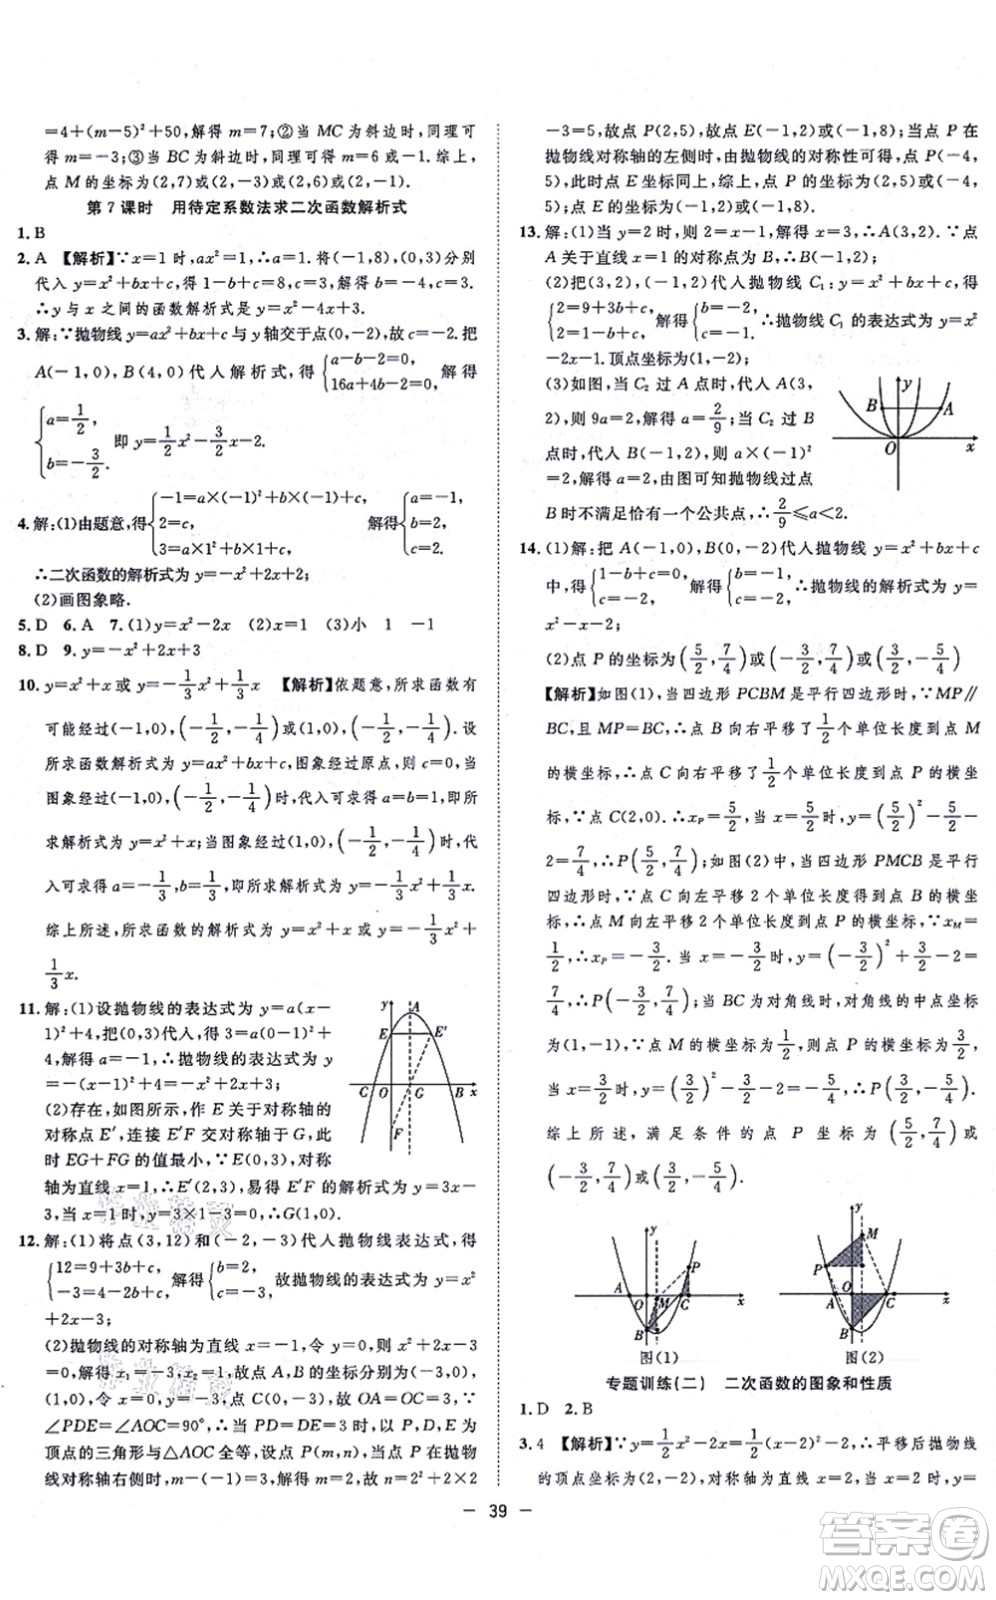 =4+(m-5)²+50,解得 m=7;②当 MC为斜边时,同理可
得 m=-3;③当 BC为斜边时,同理可得 m=6或-1.综上,
点 M 的坐标为(2,7)或(2,-3)或(2,6)或(2,-1).
第 7 课时 用待定系数法求二次函数解析式
1. B
2. A 【解析】∵x=1时,ax²=1,∴a=1.将(-1,8),(0,3)分别
代入 y=x²+bx+c,得1-b+c=8,c=3.∴b=-4,c=3.
∴y 与 x 之间的函数解析式是 y=x²-4x+3.
3. 解:∵抛物线 y=ax²+bx+c与y轴交于点(0,-2),故c=-2.把
A(-1,0),B(4,0)代入解析式,得{a-b-2=0, 16a+4b-2=0, 解得
{a=1/2, b=-3/2, 即 y=1/2x²-3/2x-2.
4. 解:(1)由题意,得{-1=a×(-1)²+b×(-1)+c, 2=c, 3=a×1²+b×1+c, 解得{a=-1, b=2, c=2.
∴二次函数的解析式为 y=-x²+2x+2;
(2)画图象略.
5. D 6. A 7. (1)y=x²-2x (2)x=1 (3)小 1 -1
8. D 9. y=-x²+2x+3
10. y=x²+x或 y=-1/3x²+1/3x 【解析】依题意,所求函数有
可能经过(-1,0),(-1/2,-1/4)或(1,0),(-1/2,-1/4).设
所求函数解析式为 y=ax²+bx+c,图象经过原点,则 c=0,当
图象经过(-1,0),(-1/2,-1/4)时,代入可求得a=b=1,即所
求解析式为 y=x²+x;当图象经过(1,0),(-1/2,-1/4)时,代
入可求得 a=-1/3,b=1/3,即所求解析式为 y=-1/3x²+1/3x.
综上所述,所求函数的解析式为 y=x²+x 或 y=-1/3x²+
1/3x.
11. 解:(1)设抛物线的表达式为 y=a(x-
1)²+4,把(0,3)代入,得 3=a(0-1)²+
4,解得 a=-1,∴抛物线的表达式为 y
=-(x-1)²+4,即 y=-x²+2x+3;
(2)存在,如图所示,作 E 关于对称轴的
对称点 E′,连接 E′F 交对称轴于 G,此
时 EG+FG 的值最小,∵E(0,3),对称
轴为直线 x=1,∴E′(2,3),易得 E′F 的解析式为 y=3x-
3,当 x=1时,y=3×1-3=0,∴G(1,0).
y A E E′ C O G B x F
12. 解:(1)将点(3,12)和(-2,-3)代入抛物线表达式,得
{12=9+3b+c, -3=4-2b+c, 解得{b=2, c=-3, 故抛物线的表达式为 y=x²
+2x-3;
(2)抛物线的对称轴为直线 x=-1,令 y=0,则 x²+2x-3
=0,解得 x₁=-3,x₂=1,故点 A 的坐标分别为(-3,0),
(1,0),令 x=0,则 y=-3,故点 C(0,-3),故 OA=OC=3,∵
∠PDE=∠AOC=90°,∴当 PD=DE=3时,以 P,D,E为
顶点的三角形与△AOC全等,设点 P(m,n),当点 P 在抛物
线对称轴右侧时,m-(-1)=3,解得 m=2,故 n=2²+2×2
-3=5,故点 P(2,5),故点 E(-1,2)或(-1,8);当点 P 在
抛物线对称轴的左侧时,由抛物线的对称性可得点 P(-4,
5),此时点 E 坐标同上,综上,点 P 的坐标为(2,5)或(-4,
5),点 E 的坐标为(-1,2)或(-1,8).
13. 解:(1)当 y=2时,2=x-1,解得 x=3,∴A(3,2).∵点
A关于直线 x=1的对称点为 B,∴B(-1,2);
(2)把(3,2),(-1,2)代入抛物线 C₁:y=x²+bx+c,得
{2=9+3b+c, 2=1-b+c, 解得{b=-2, c=-1. ∴抛物线C₁的表达式为 y=x²
-2x-1.顶点坐标为(1,-2);
(3)如图,当 C₂ 过 A 点时,代入 A(3,
2),则 9a=2,解得 a=2/9;当 C₂ 过 B
点时,代入 B(-1,2),则 a×(-1)²
=2,解得 a=2,由图可知抛物线过点
B 时不满足恰有一个公共点,∴2/9≤a<2.
y B A O x
14. (1)解:把 A(-1,0),B(0,-2)代入抛物线 y=x²+bx+c
中,得{1-b+c=0, c=-2, 解得{b=-1, c=-2, ∴抛物线的解析式为 y=
x²-x-2;
(2)点 P 的坐标为(5/2,7/4)或(-3/2,7/4)或(3/2,-5/4)
【解析】如图(1),当四边形 PCBM 是平行四边形时,∵MP∥
BC,且 MP=BC,∴点 B 向右平移了1/2个单位长度到点 M
的横坐标,∴点 C 向右平移了1/2个单位长度到点 P 的横坐
标,∵点 C(2,0).∴xP=5/2,当 x=5/2时,y=(5/2)²-5/2-
2=7/4,∴P(5/2,7/4);如图(2),当四边形 PMCB 是平行
四边形时,∵点 C 向左平移2个单位长度得到点 B 的横坐
标,∴点 M 向左平移2个单位长度到点 P 的横坐标,∵xM=
1/2,∴xP=-3/2,当 x=-3/2时,y=(-3/2)²+3/2-2=
7/4,∴P(-3/2,7/4);当 BC 为对角线时,对角线的中点坐标
为(1,-1),∵点 M 的横坐标为1/2,∴点 P 的横坐标为3/2,
当 x=3/2时,y=(3/2)²-3/2-2=-5/4,∴P(3/2,-5/4).
综上所述,满足条件的点 P 坐标为(5/2,7/4)或
(-3/2,7/4)或(3/2,-5/4).
y P O M C x B 图(1)
y M P O C x B 图(2)
专题训练(二) 二次函数的图象和性质
1. D 2. B
3. 4 【解析】∵y=1/2x²-2x=1/2(x-2)²-2,∴平移后抛物线
的顶点坐标为(2,-2),对称轴为直线 x=2,当 x=2时,y=
— 39 —
答案圈
MXQE.COM